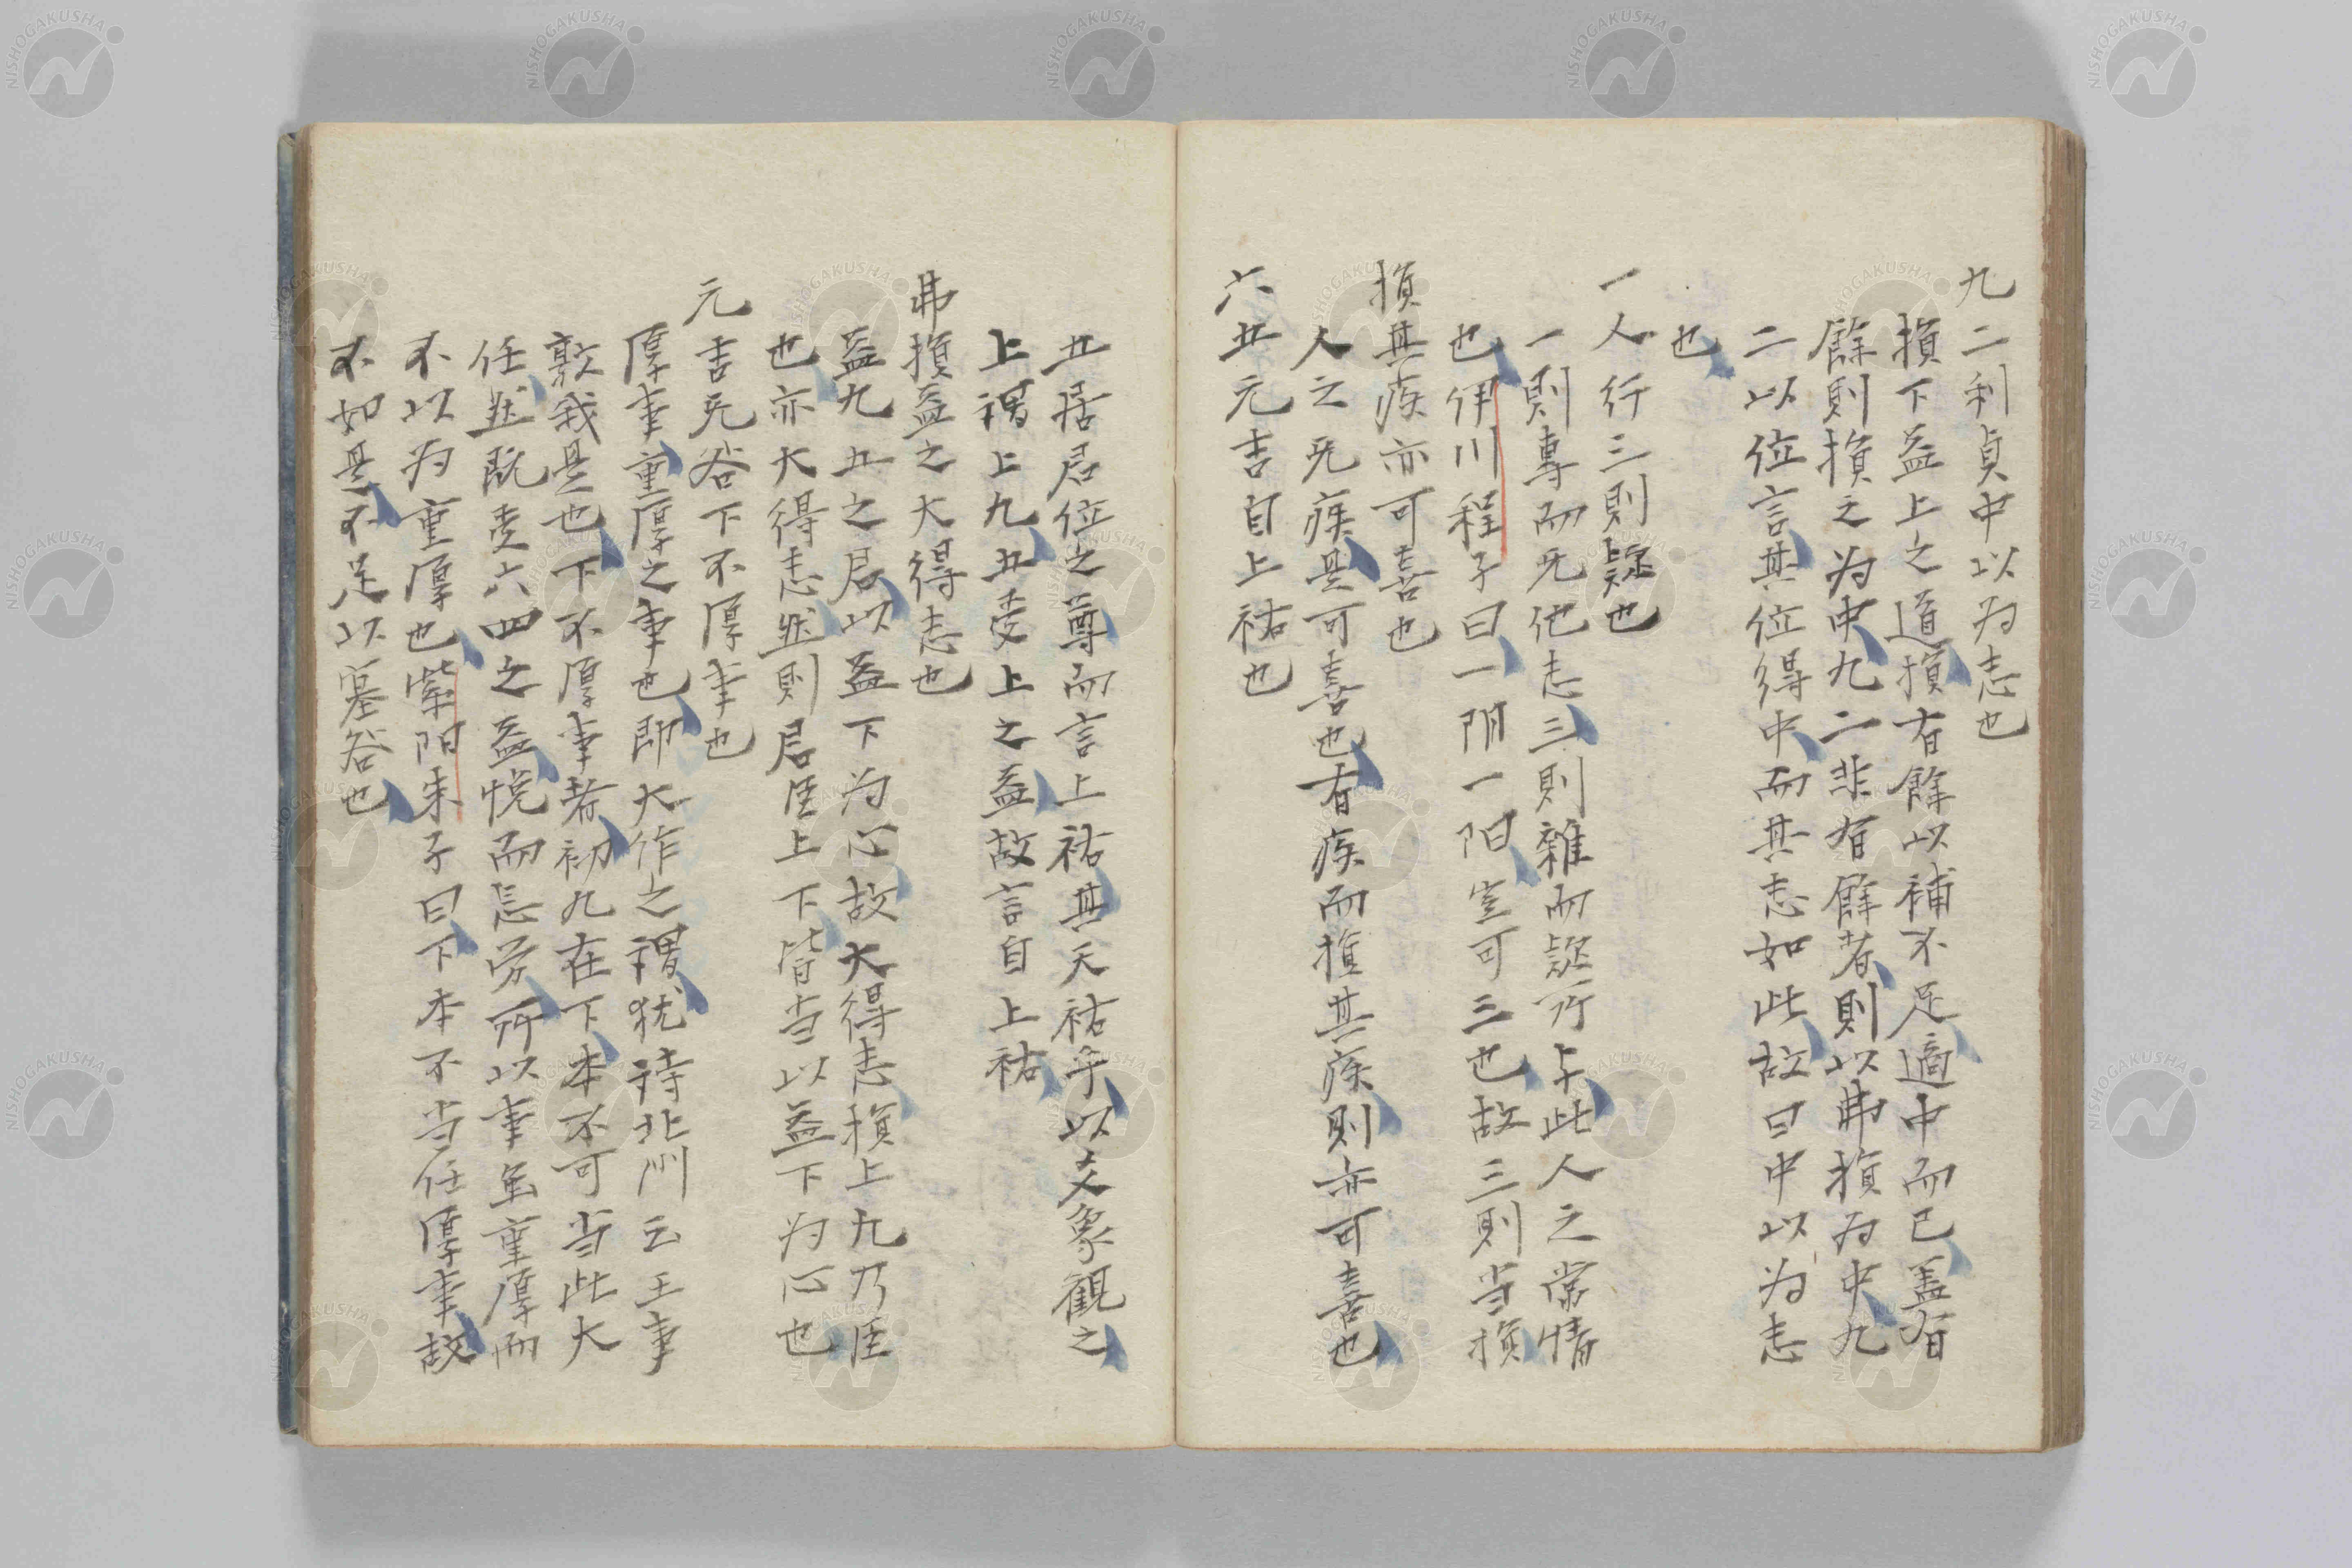 九二利貞中以为志也
損下益上之道損有餘以補不足適中而已盖有
餘則損之为中九二非有餘者則以弗損为中九
二以位言其位得中而其志如此故曰中以为志
也
一人行三則疑也
一則專而无他志三則雜而疑所与此人之常情
也伊川程子曰一阴一阳豈可三也故三則当損
損其疾亦可喜也
人之无疾是可喜也有疾而損其疾則亦可喜也
六五元吉自上祐也
五居君位之尊而言上祐其天祐乎以爻象観之
上謂上九五受上之益故言自上祐
弗損益之大得志也
益九五之君以益下为心故大得志損上九乃臣
也亦大得志然則君臣上下皆当以益下为心也
元吉无咎下不厚事也
厚事重厚之事也即大作之謂犹詩北门云王事
敦我是也下不厚事者初九在下本不可当此大
任然既受六四之益悦而忘劳所以事虽重厚而
不以为重厚也紫阳朱子曰下本不当任厚事故
不如是不足以塞咎也
NISHOGAKUSHA